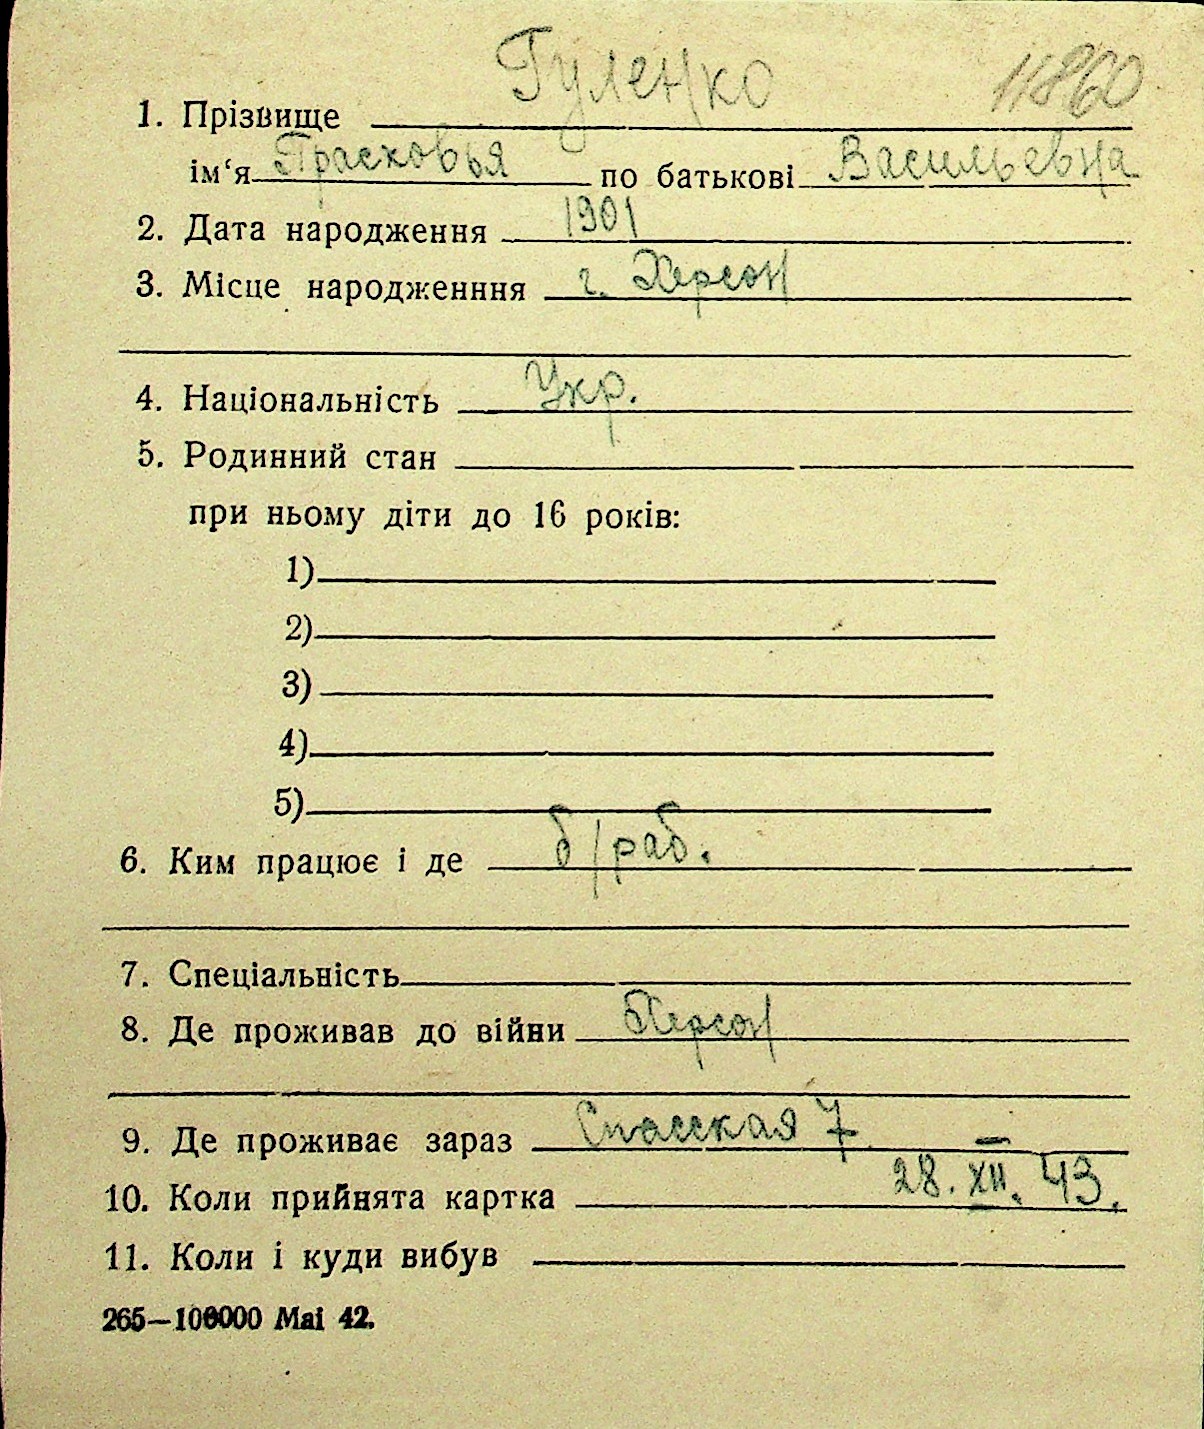 1. Прізвище Гуленко 11860
ім‘я Прасковья по батькові Васильевна
2. Дата народження 1901
3. Місце народженння г. Херсон
4. Національність Укр.
5. Родинний стан
при ньому діти до 16 років:
1)
2)
3)
4)
5)
6. Ким працює і де б/раб.
7. Спеціальність
8. Де проживав до війни Херсон
9. Де проживає зараз Спасская 7
10. Коли прийнята картка 28.XII.43.
11. Коли і куди вибув
265—100000 Mai 42.